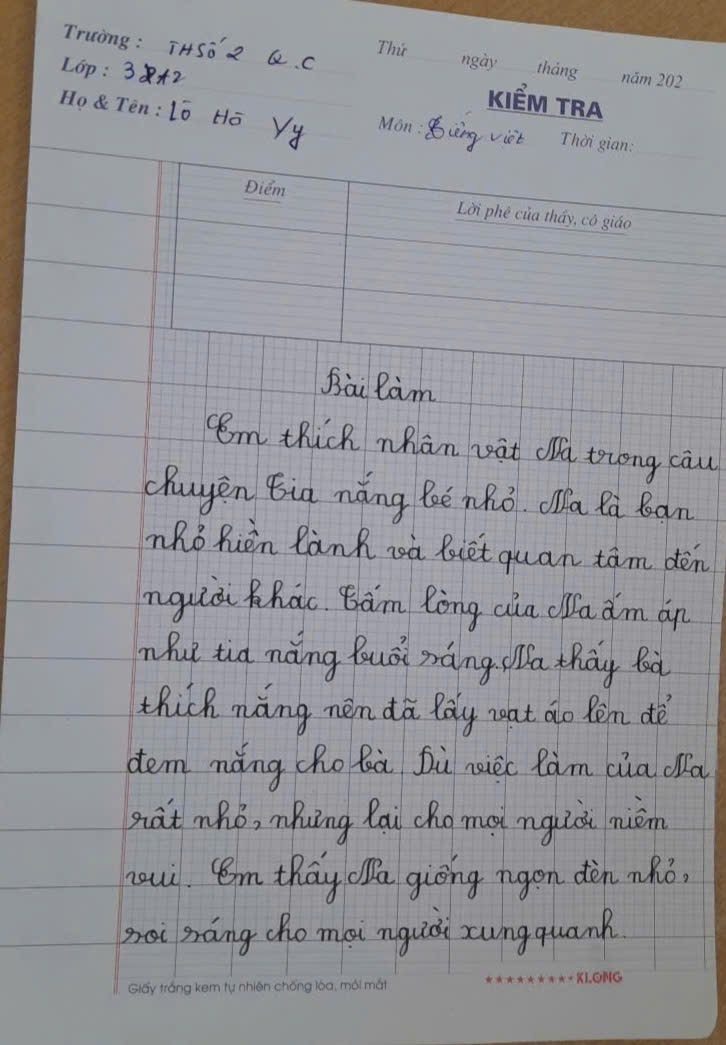 Trường : TH Số 2 Q.C
Thứ ngày tháng năm 202
Lớp : 3A2
KIỂM TRA
Họ & Tên : Lò Hà Vy
Môn : Tiếng việt Thời gian:
Điểm
Lời phê của thầy, cô giáo
Bài làm
Em thích nhân vật Na trong câu
chuyện Tia nắng bé nhỏ. Na là bạn
nhỏ hiền lành và biết quan tâm đến
người khác. Tấm lòng của Na ấm áp
như tia nắng buổi sáng. Na thấy bà
thích nắng nên đã lấy vạt áo lên để
đem nắng cho bà Dù việc làm của Na
rất nhỏ, nhưng lại cho mọi người niềm
vui. Em thấy Na giống ngọn đèn nhỏ,
soi sáng cho mọi người xung quanh.
Giấy trắng kem tự nhiên chống lóa, mỏi mắt
KLONG